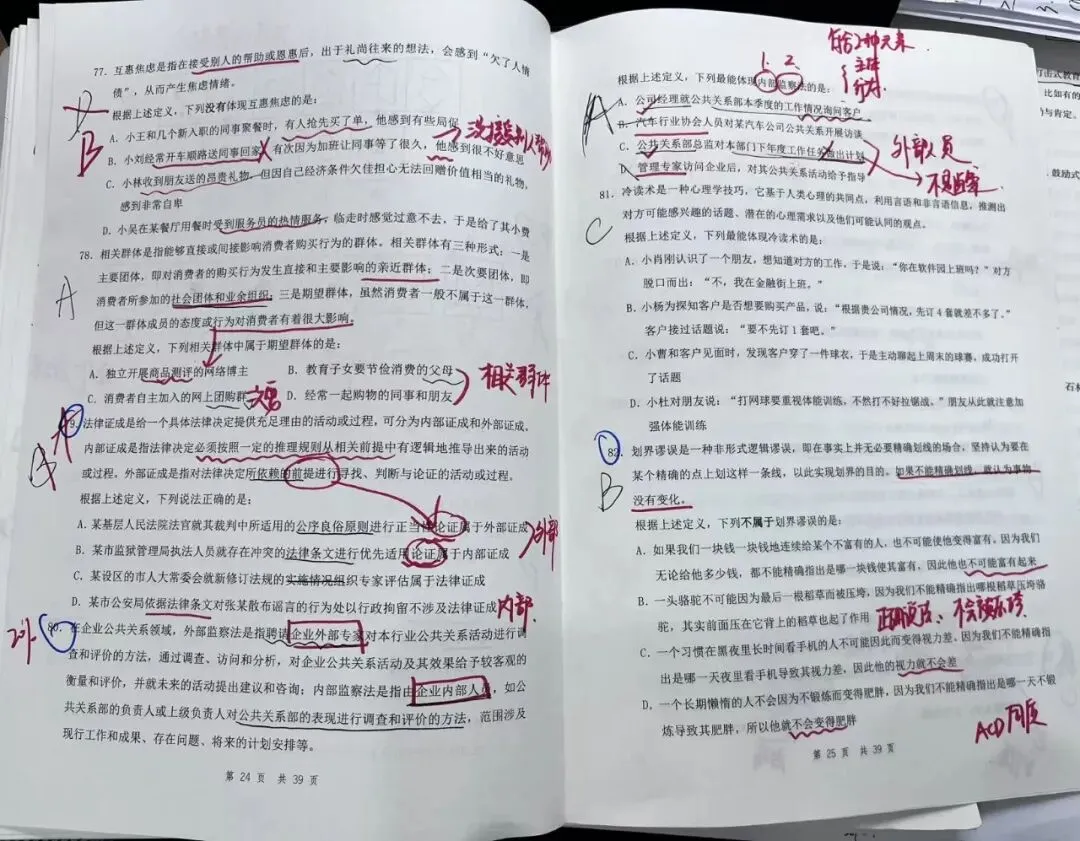 77. 互惠焦虑是指在接受别人的帮助或恩惠后，出于礼尚往来的想法，会感到“欠了人情
债”，从而产生焦虑情绪。
D
根据上述定义，下列没有体现互惠焦虑的是：
A. 小王和几个新入职的同事聚餐时，有人抢先买了单，他感到有些局促
B
B. 小刘经常开车顺路送同事回家，有次因为加班让同事等了很久，他感到很不好意思
没接受别人帮助
C. 小林收到朋友送的昂贵礼物，但因自己经济条件欠佳无法回赠价值相当的礼物，
感到非常自卑
D. 小吴在某餐厅用餐时受到服务员的热情服务，临走时感觉过意不去，于是给了其小费
78. 相关群体是指能够直接或间接影响消费者购买行为的群体。相关群体有三种形式：一是
主要团体，即对消费者的购买行为发生直接和主要影响的亲近群体；二是次要团体，即
A
消费者所参加的社会团体和业余组织；三是期望群体，虽然消费者一般不属于这一群体，
但这一群体成员的态度或行为对消费者有着很大影响。
根据上述定义，下列相关群体中属于期望群体的是：
A. 独立开展商品测评的网络博主 B. 教育子女要节俭消费的父母
C. 消费者自主加入的网上团购群 D. 经常一起购物的同事和朋友
次要
79. 法律证成是给一个具体法律决定提供充足理由的活动或过程，可分为内部证成和外部证成。
内部证成是指法律决定必须按照一定的推理规则从相关前提中有逻辑地推导出来的活动
或过程。外部证成是指对法律决定所依赖的前提进行寻找、判断与论证的活动或过程。
根据上述定义，下列说法正确的是：
A. 某基层人民法院法官就其裁判中所适用的公序良俗原则进行正当性论证属于外部证成
B. 某市监狱管理局执法人员就存在冲突的法律条文进行优先适用论证属于内部证成
外部
C. 某设区的市人大常委会就新修订法规的实施情况组织专家评估属于法律证成
D. 某市公安局依据法律条文对张某散布谣言的行为处以行政拘留不涉及法律证成
内部
80. 在企业公共关系领域，外部监察法是指聘请企业外部专家对本行业公共关系活动进行调
查和评价的方法，通过调查、访问和分析，对企业公共关系活动及其效果给予较客观的
衡量和评价，并就未来的活动提出建议和咨询；内部监察法是指由企业内部人员，如公
共关系部的负责人或上级负责人对公共关系部的表现进行调查和评价的方法，范围涉及
现行工作和成果、存在问题、将来的计划安排等。
第 24 页 共 39 页
1. 2.
主体
根据上述定义，下列最能体现内部监察法的是：
A
A. 公司经理就公共关系部本季度的工作情况询问客户
B. 汽车行业协会人员对某汽车公司公共关系开展访谈
C. 公共关系部总监对本部门下年度工作任务做出计划
外部人员
D. 管理专家访问企业后，对其公共关系活动给予指导
不是监察
81. 冷读术是一种心理学技巧，它基于人类心理的共同点，利用言语和非言语信息，推测出
对方可能感兴趣的话题、潜在的心理需求以及他们可能认同的观点。
C
根据上述定义，下列最能体现冷读术的是：
A. 小肖刚认识了一个朋友，想知道对方的工作，于是说：“你在软件园上班吗？”对方
脱口而出：“不，我在金融街上班。”
B. 小杨为探知客户是否想要购买产品，说：“根据贵公司情况，先订 4 套就差不多了。”
客户接过话题说：“要不先订 1 套吧。”
C. 小曹和客户见面时，发现客户穿了一件球衣，于是主动聊起上周末的球赛，成功打开
了话题
D. 小杜对朋友说：“打网球要重视体能训练，不然打不好拉锯战。”朋友从此就注意加
强体能训练
82. 划界谬误是一种非形式逻辑谬误，即在事实上并无必要精确划线的场合，坚持认为要在
某个精确的点上划这样一条线，以此实现划界的目的。如果不能精确划线，就认为事物
B
没有变化。
根据上述定义，下列不属于划界谬误的是：
A. 如果我们一块钱一块钱地连续给某个不富有的人，也不可能使他变得富有。因为我们
无论给他多少钱，都不能精确指出是哪一块钱使其富有，因此他也不可能富有起来
B. 一头骆驼不可能因为最后一根稻草而被压垮，因为我们不能精确指出哪根稻草压垮骆
驼，其实前面压在它背上的稻草也起了作用
C. 一个习惯在黑夜里长时间看手机的人不可能因此而变得视力差。因为我们不能精确指
出是哪一天夜里看手机导致其视力差，因此他的视力就不会差
D. 一个长期懒惰的人不会因为不锻炼而变得肥胖，因为我们不能精确指出是哪一天不锻
炼导致其肥胖，所以他就不会变得肥胖
ACD同质
第 25 页 共 39 页